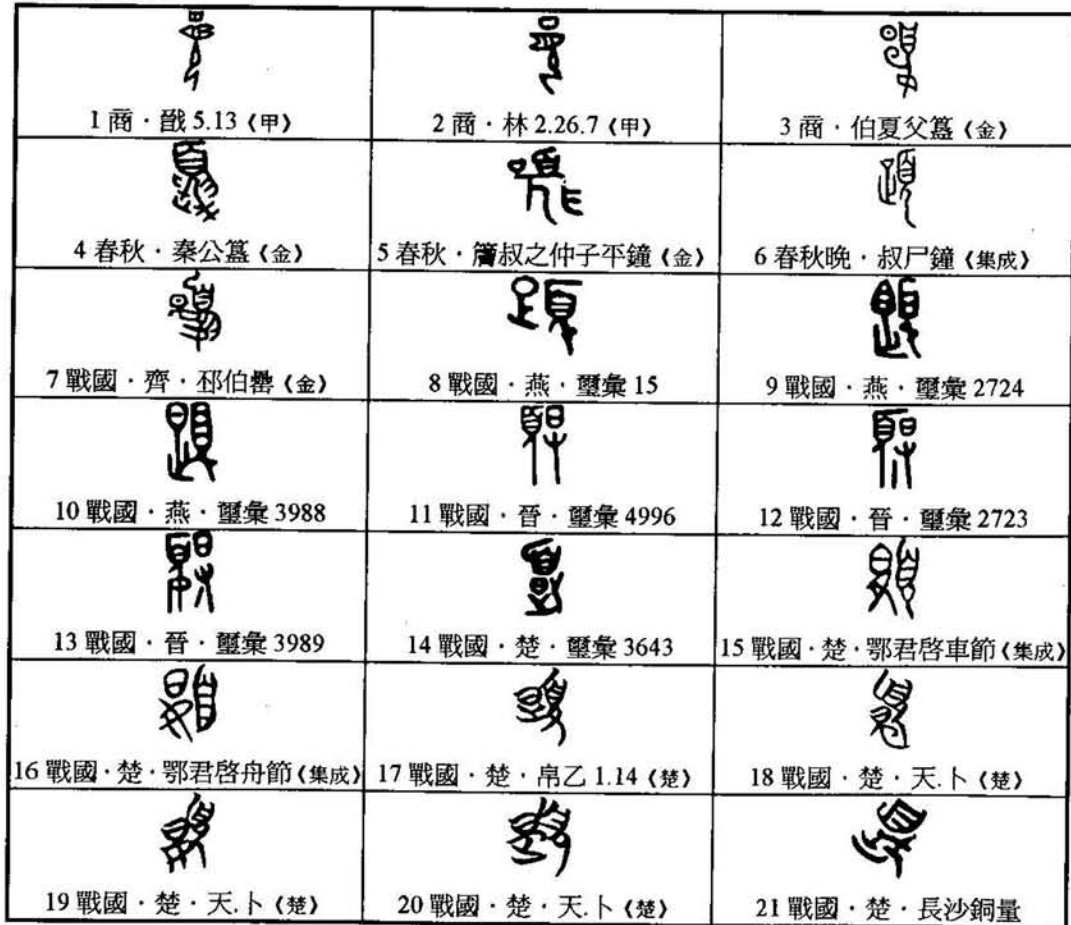 1 商．戩 5.13《甲》
2 商．林 2.26.7《甲》
3 商．伯夏父簋《金》
4 春秋．秦公簋《金》
5 春秋．簷叔之仲子平鐘《金》
6 春秋晚．叔尸鐘《集成》
7 戰國．齊．邳伯罍《金》
8 戰國．燕．璽彙 15
9 戰國．燕．璽彙 2724
10 戰國．燕．璽彙 3988
11 戰國．晉．璽彙 4996
12 戰國．晉．璽彙 2723
13 戰國．晉．璽彙 3989
14 戰國．楚．璽彙 3643
15 戰國．楚．鄂君啓車節《集成》
16 戰國．楚．鄂君啓舟節《集成》
17 戰國．楚．帛乙 1.14《楚》
18 戰國．楚．天.卜《楚》
19 戰國．楚．天.卜《楚》
20 戰國．楚．天.卜《楚》
21 戰國．楚．長沙銅量